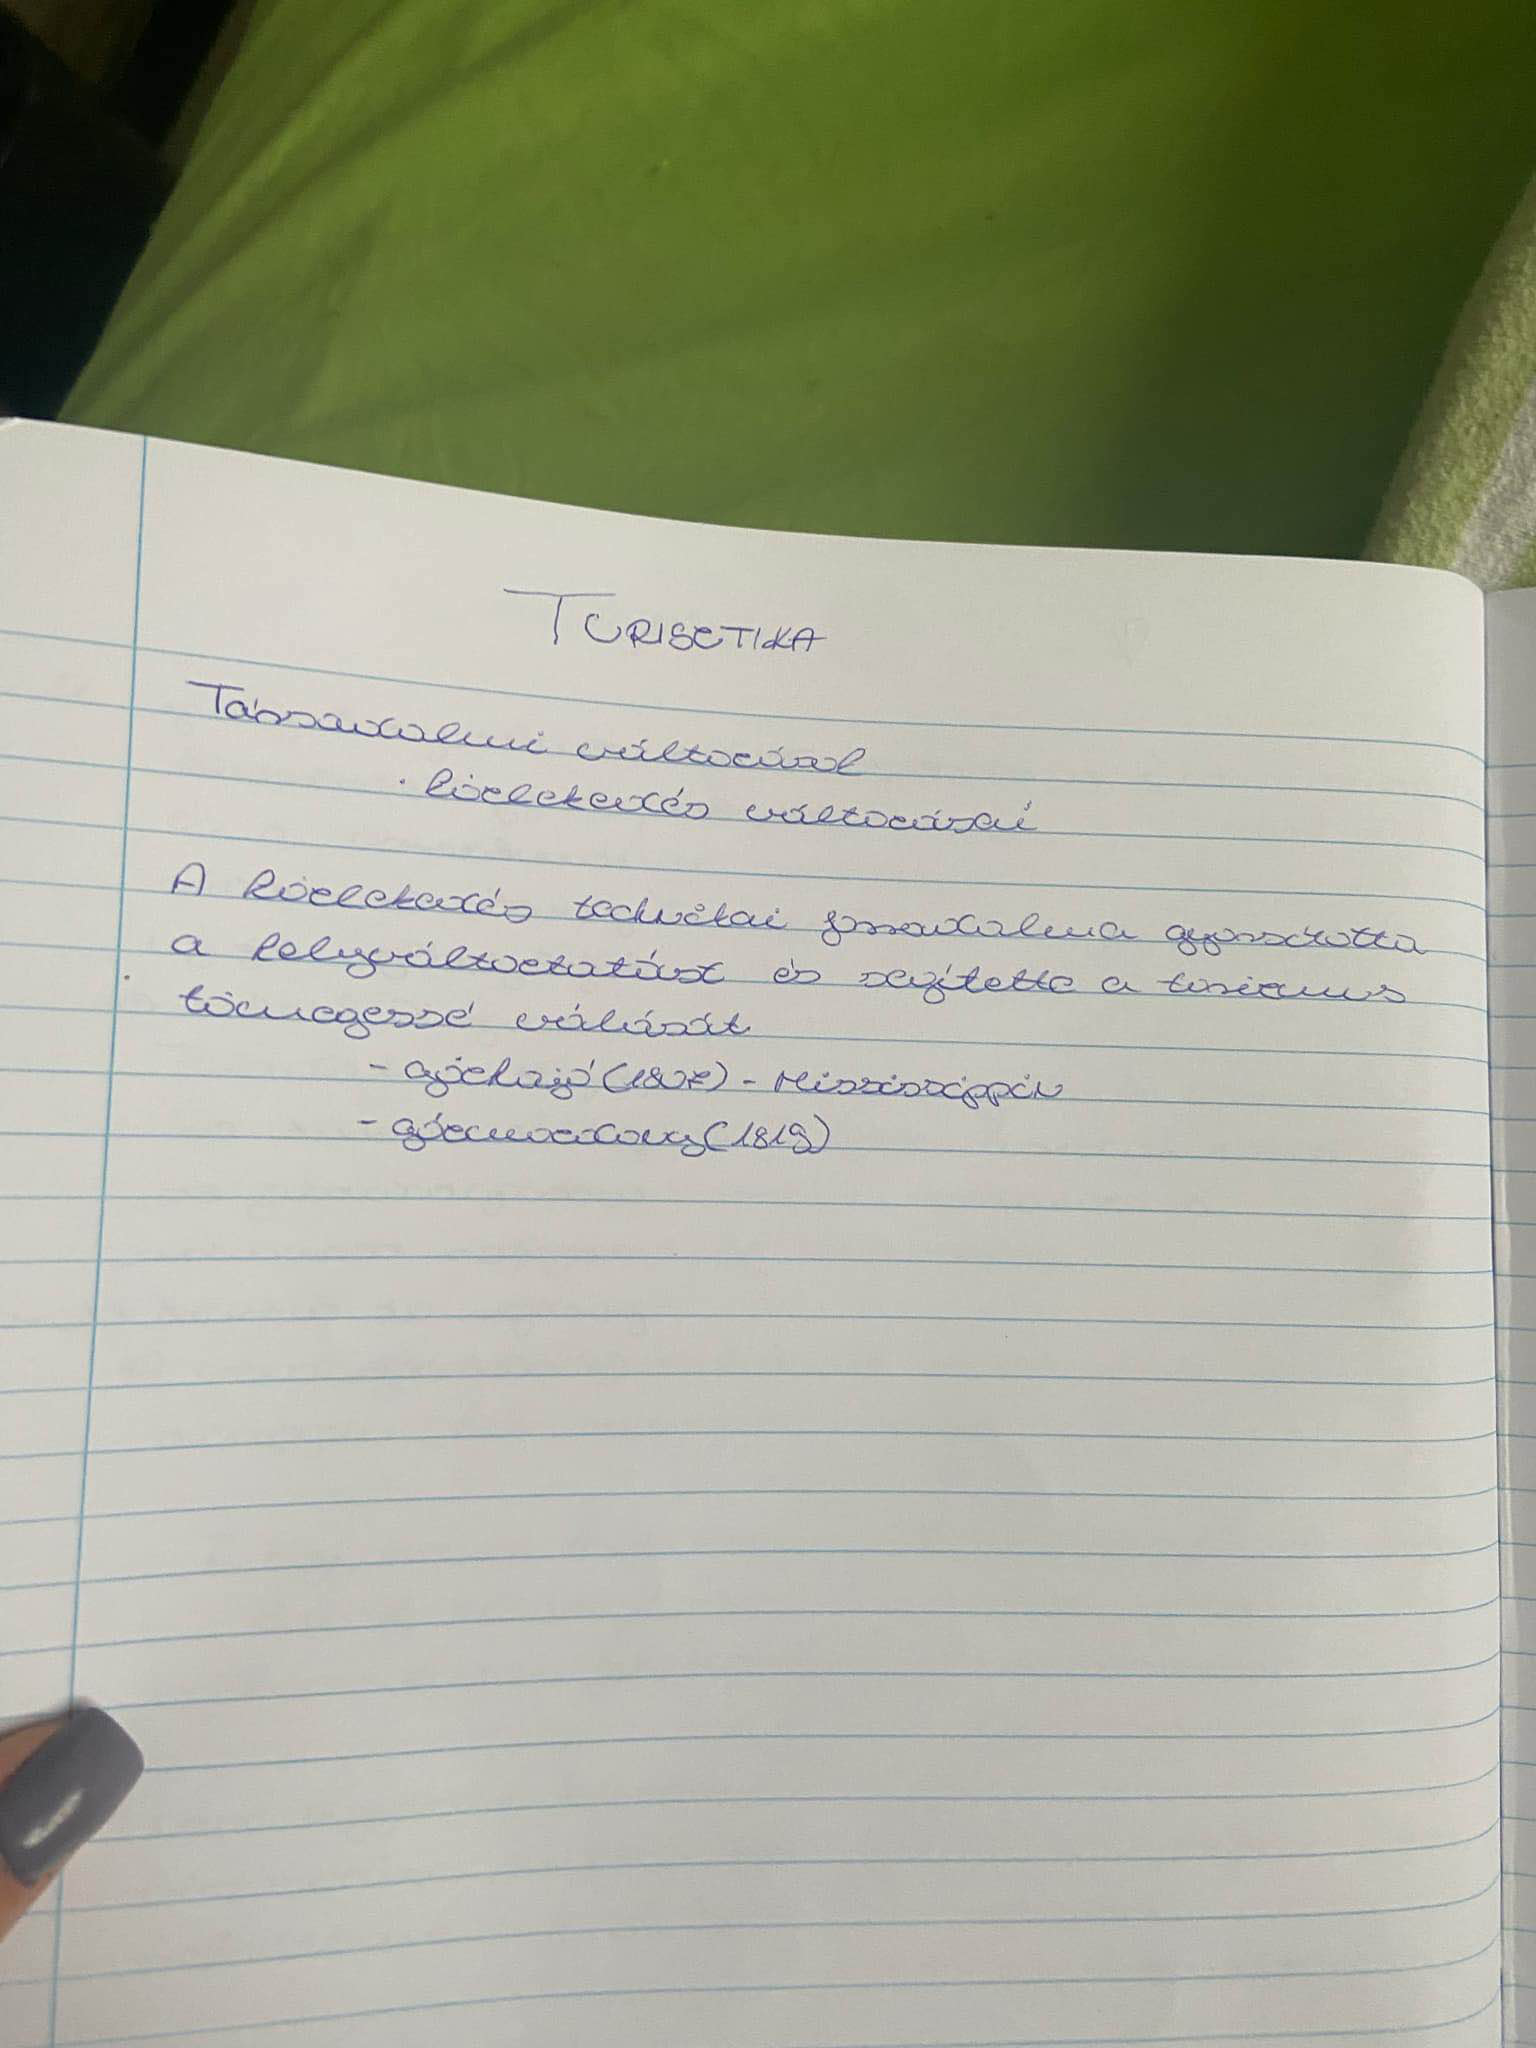 TURISZTIKA
Társadalmi változások
· közlekedés változásai
A közlekedés technikai forradalma gyorsította
a helyváltoztatást és segítette a turizmus
tömegessé válását
- gőzhajó (1807) - Mississippin
- gőzmozdony (1819)